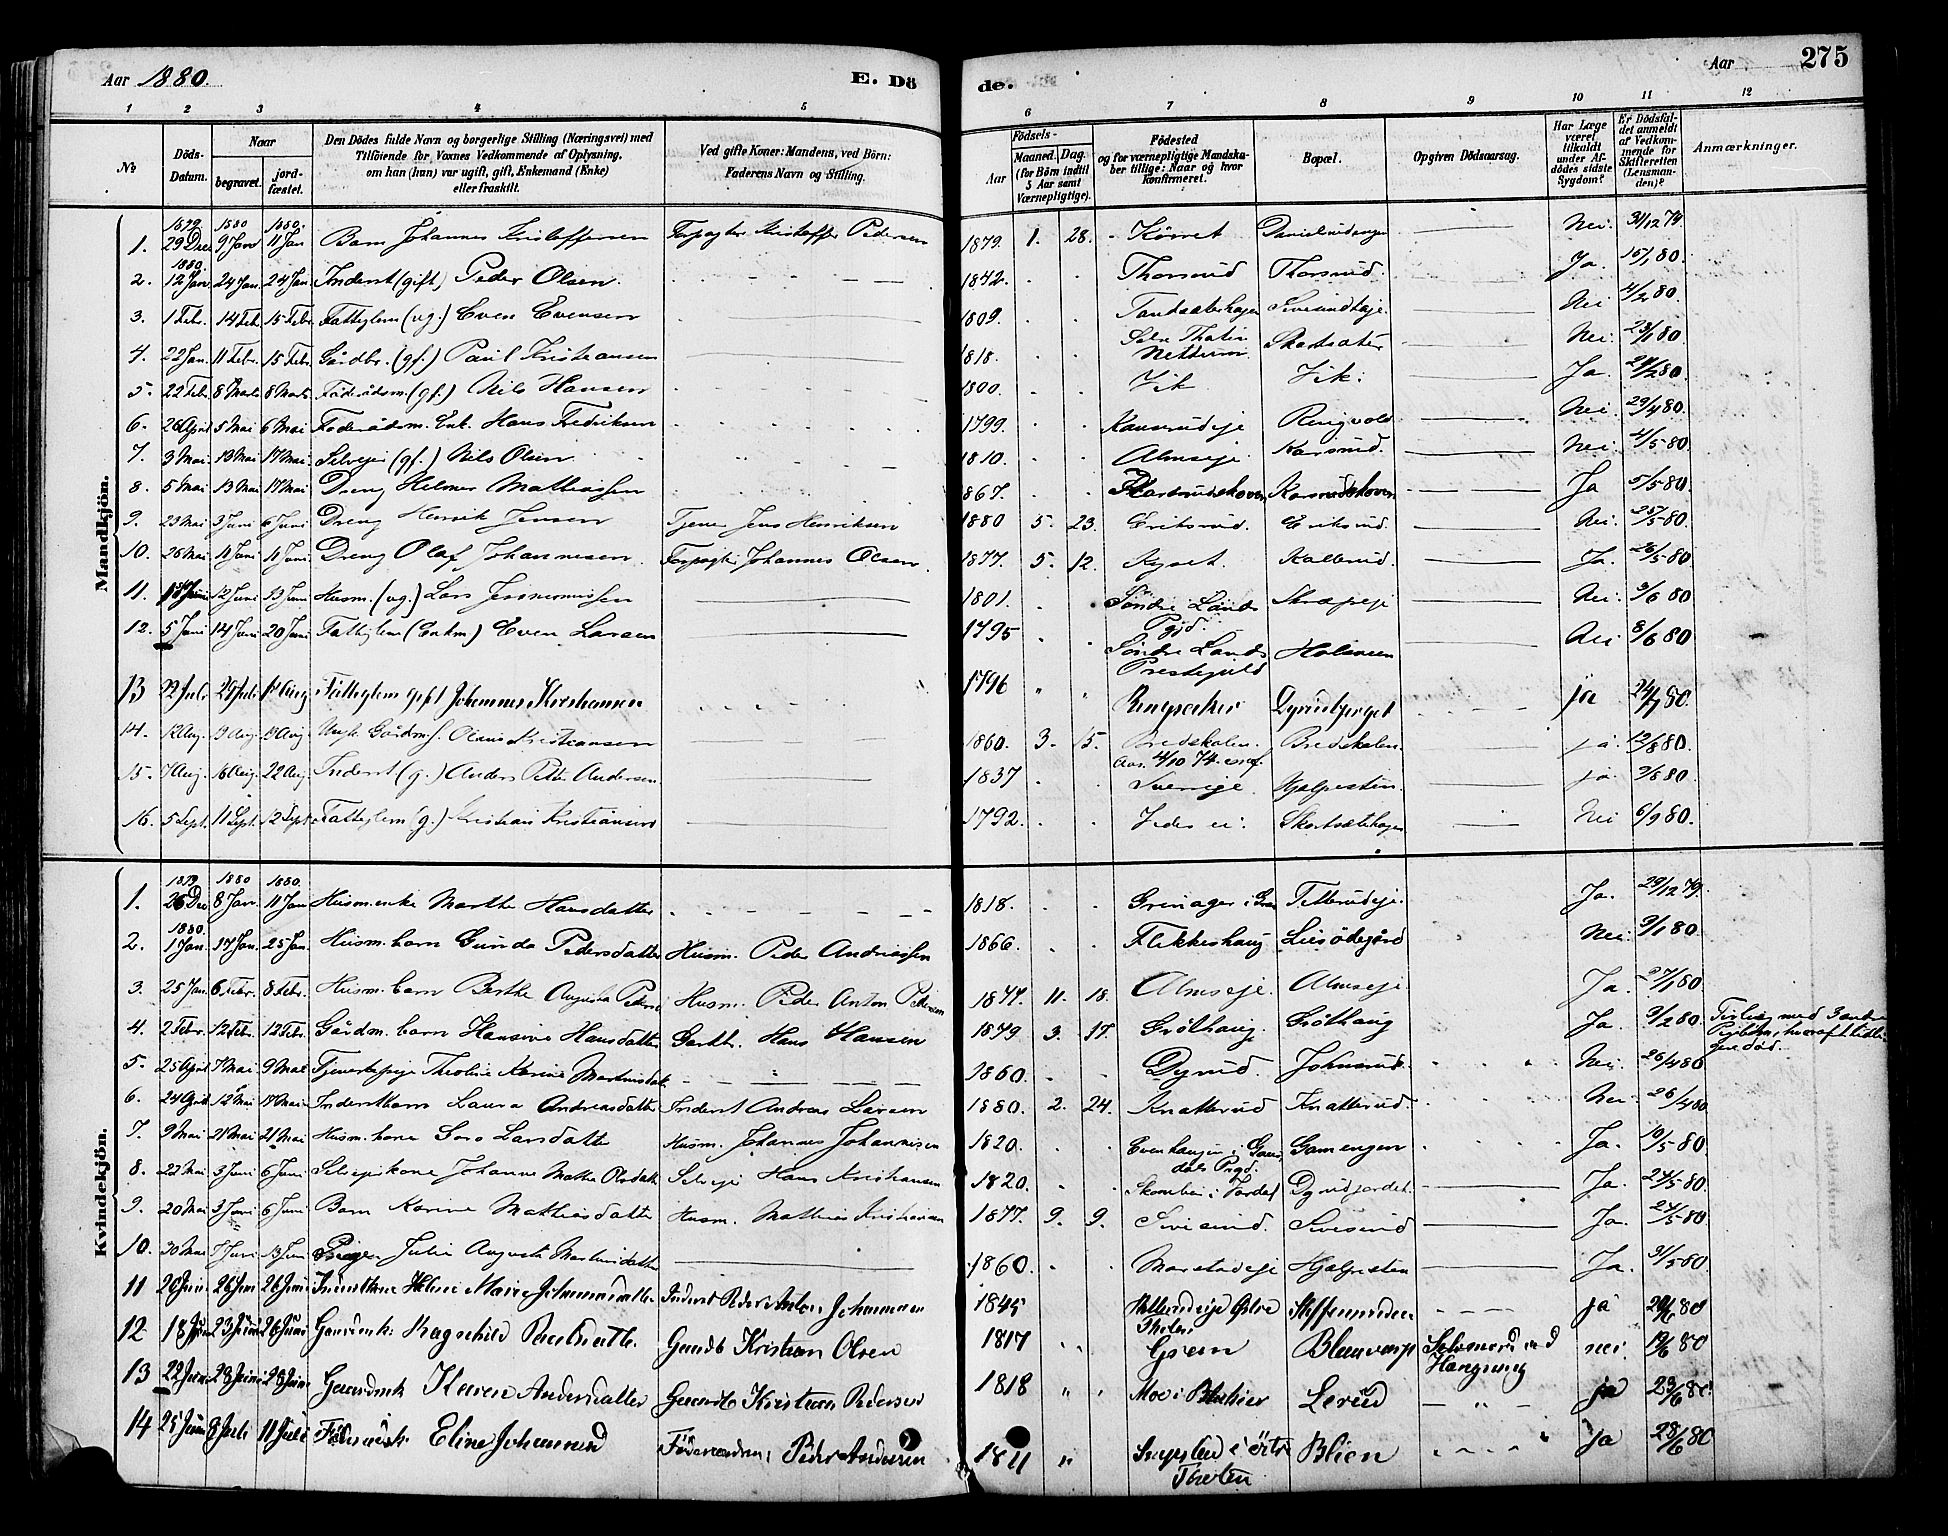 Aar 1880.
E. Döde.
Aar
275
1 2 3 4 5 6 7 8 9 10 11 12
No
Döds-Datum.
Naar
begravet.
jordfæstet.
Den Dödes fulde Navn og borgerlige Stilling (Næringsvei) med
Tilföiende for Voxnes Vedkommende af Oplysning,
om han (hun) var ugift, gift, Enkemand (Enke)
eller fraskilt.
Ved gifte Koner: Mandens, ved Börn:
Faderens Navn og Stilling.
Födsels-
Aar
Maaned. Dag.
(for Börn indtil
5 Aar samt
Værnepligtige).
Födested
og for værnepligtige Mandskaber tillige: Naar og hvor
konfirmeret.
Bopæl.
Opgiven Dödsaarsag.
Har Læge
været
tilkaldt
under Afdödes sidste
Sygdom?
Er Dödsfaldet anmeldt
af Vedkommende for
Skifteretten
(Lensmanden)?
Anmærkninger.
Mandkjön.
1879 1880 1880.
1. 29 Dec 9 Jan 11 Jan Barn Johannes Kristoffersen Forpagter Kristoffer Pedersen 1879. 1. 28. Nei. 31/12 79
1880.
2. 12 Jan 24 Jan. 24 Jan. Inderst (gift) Peder Olsen. 1842. Thorsrud Thorsrud. Ja. 15/1 80.
3. 1 Febr. 14 Feb. 15 Febr. Fattiglem (ug.) Even Evensen 1809. Nei 4/2 80.
4. 22 Jan. 11 Febr. 15 Febr. Gårdbr. (gf.) Paul Kristiansen 1818. Nei. 23/1 80.
5. 22 Febr. 8 Marts 8 Marts Föderådsm. (gf.) Nils Hansen 1800. Vik Vik. Ja. 24/2 80.
6. 26 April 5 Mai 6 Mai Föderådsm. Enk. Hans Fredriksen 1799. Ringvold Nei. 29/4 80.
7. 3 Mai. 13 Mai 17 Mai Selveier (gf.) Nils Olsen 1810. Almseje. Karsrud. Nei. 4/5 80.
8. 5 Mai 13 Mai 17 Mai Dreng Helmer Mathiassen 1867. Karsrudskoven Ja 5/5 80.
9. 23 Mai 3 Juni 6 Juni Dreng Henrik Jensen Tjener Jens Henriksen 1880 5. 23. Eriksrud. Eriksrud. Nei. 25/5 80.
10. 26 Mai 11 Juni 11 Juni Dreng Olaf Johannesen. Forpagter Johannes Olsen. 1877. 5. 12. Kyset. Kalbrud. Ja. 26/5 80
11. 1 Juni 12 Juni 13 Juni Husm. (ug.) Lars 1801. Söndre Lands Pgjd. Nei. 3/6 80
12. 5 Juni 14 Juni 20 Juni Fattiglem (Enkm) Even Larsen 1795 Söndre Lands Prestegjeld Nei. 8/6 80
13 22 Juli 29 Juli 1 Aug Fattiglem gift Johannes Kristiansen 1796 " " Ringsaker ja 24/7 80.
14. 12 Aug. 19 Aug. Ungk. Gårdm.s. Olaus Kristiansen 1860. 3. 15. Bredskalen. Bredskalen. ja. 13/8 80.
15. 7 Aug. 16 Aug. 22 Aug. Inderst (g.) Anders Petter Andersen 1837 Sverrige. Hjelpesten. ja. 80
16. 5 Sept. 11 Sept. 12 Sept. Fattiglem (g.) Kristian Kristiansen 1792. Vides ei. Nei 6/9 80.
Kvindekjön.
1879 1880 1880.
1. 26 Dec 8 Jan. 11 Jan Husm.enke Marthe Hansdatter 1818. Ja. 29/12 79.
1880.
2. 1 Jan. 17 Jan. 25 Jan. Husm.barn Gunda Pedersdatter Husm. Peder Andreassen 1866. Flikkeshaug Lies ödegård Nei. 9/1 80.
3. 25 Jan. 6 Febr. 8 Febr. Husm.barn Berthe Augusta Peders. Husm. Peder Anton Pedersen 1877. 11. 18. Almseje. Almseje Ja. 27/1 80.
4. 2 Febr. 12 Febr. 12 Febr. Gårdm.barn Hansine Hansdatter Gårdbr. Hans Hansen 1879 3. 17. Gröthaug. Gröthaug Ja. 9/2 80.
5. 25 April 7 Mai 9 Mai Tjenestepige Theoline Karine Martinusdat. 1860. Dyrud. Johnsrud. Nei. 26/4 80
6. 24 April 12 Mai 17 Mai Inderstbarn Laura Andreasdatter Inderst Andreas Larsen 1880. 2. 24. Knatterud Knatterud. Nei. 26/4 80.
7. 9 Mai 21 Mai 21 Mai Husm.kone Goro Larsdatter Husm. Johannes Johannesen 1820. Gausdals Pgjd. Gamengen Ja. 10/5 80
8. 23 Mai 3 Juni 6 Juni Selveierkone Johanne Mathea Olsdatter Selveier Hans Kristiansen 1820. Dyrudjordet. Ja. 24/5 80.
9. 20 Mai 3 Juni 6 Juni Barn Karine Mathiasdatter Husm. Mathias Kristiansen 1877. 9. 9. Sivesind. Sivesind Ja. 24/5 80.
10. 30 Mai 7 Juni 13 Juni Pige Julie Augusta Martinidatter 1860. Marstadeje Hjelpesten Ja. 31/5 80.
11 20 Juni 26 Juni 26 Juni Inderstkone Helene Marie Johannesdatter Inderst Peder Anton Johannesen 1845 Östre Thoten ja 80
12 18 Juni 23 Juni 26 Juni Gaardmk. Ragnhild Paulsdatter. Gaardb Kristian Olsen 1817 " Selvmord ved Hængning nei. 19/6 80
13 22 Juni 28 Juni 28 Juni Gaardmk Karen Andersdatter Gaardb Kristian Pedersen 1818 " Lerud — " — ja 23/6 80.
14 25 Juni 8 Juli 11 Juli Föderaadsk. Eline Johannesd Föderaadsm. Peder Andersen 1811 " i östre Thoten Blien ja 28/6 80